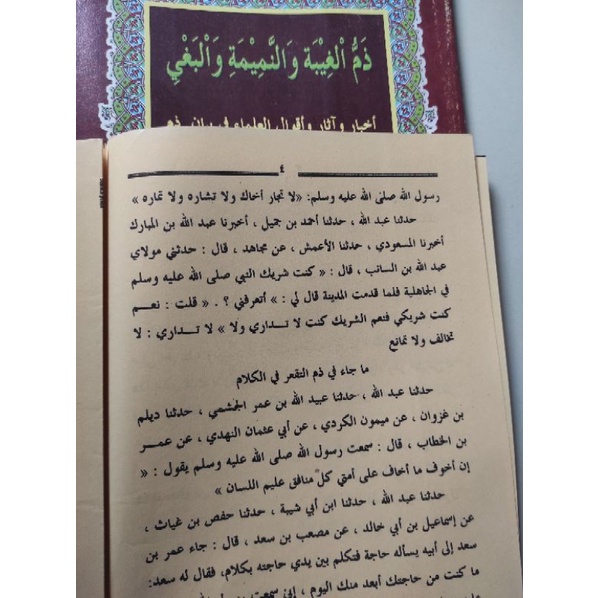 ذَمُّ الْغِيبَة وَالنَّمِيْمَةِ وَالْبَغْيِ
أخبار وآثار وأقوال العلماء في بيان ذم
٤
رسول الله صلى الله عليه وسلم: «لا تجار أخاك ولا تشاره ولا تماره »
حدثنا عبد الله ، حدثنا أحمد بن جميل ، أخبرنا عبد الله بن المبارك
أخبرنا المسعودي ، حدثنا الأعمش ، عن مجاهد ، قال : حدثني مولاي
عبد الله بن السائب ، قال : « كنت شريك النبي صلى الله عليه وسلم
في الجاهلية فلما قدمت المدينة قال لي : » أتعرفني ؟ . « قلت : نعم
كنت شريكي فنعم الشريك كنت لا تداري ولا » لا تداري : لا
تخالف ولا تمانع
ما جاء في ذم التقعر في الكلام
حدثنا عبد الله ، حدثنا عبيد الله بن عمر الجشمي ، حدثنا ديلم
بن غزوان ، عن ميمون الكردي ، عن أبي عثمان النهدي ، عن عمر
بن الخطاب ، قال : سمعت رسول الله صلى الله عليه وسلم يقول : «
إن أخوف ما أخاف على أمتي كلّ منافق عليم اللسان »
حدثنا عبد الله ، حدثنا ابن أبي شيبة ، حدثنا حفص بن غياث ،
عن إسماعيل بن أبي خالد ، عن مصعب بن سعد ، قال : جاء عمر بن
سعد إلى أبيه يسأله حاجة فتكلم بين يدي حاجته بكلام، فقال له سعد:
ما كنت من حاجتك أبعد منك اليوم ، إني سمعت